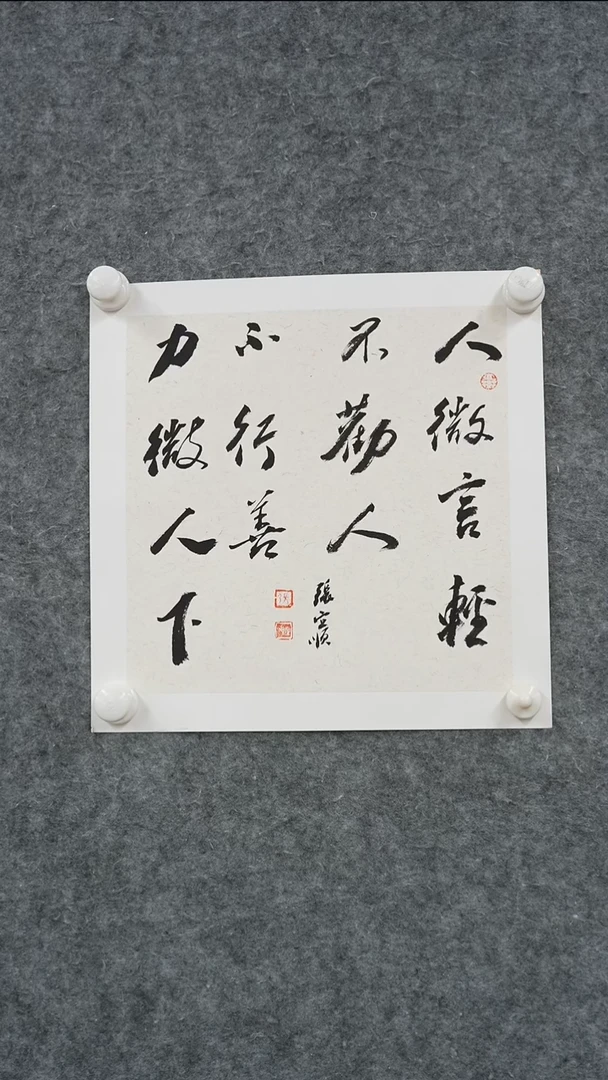 人微言輕
不勸人
力微人下
不行善
張順